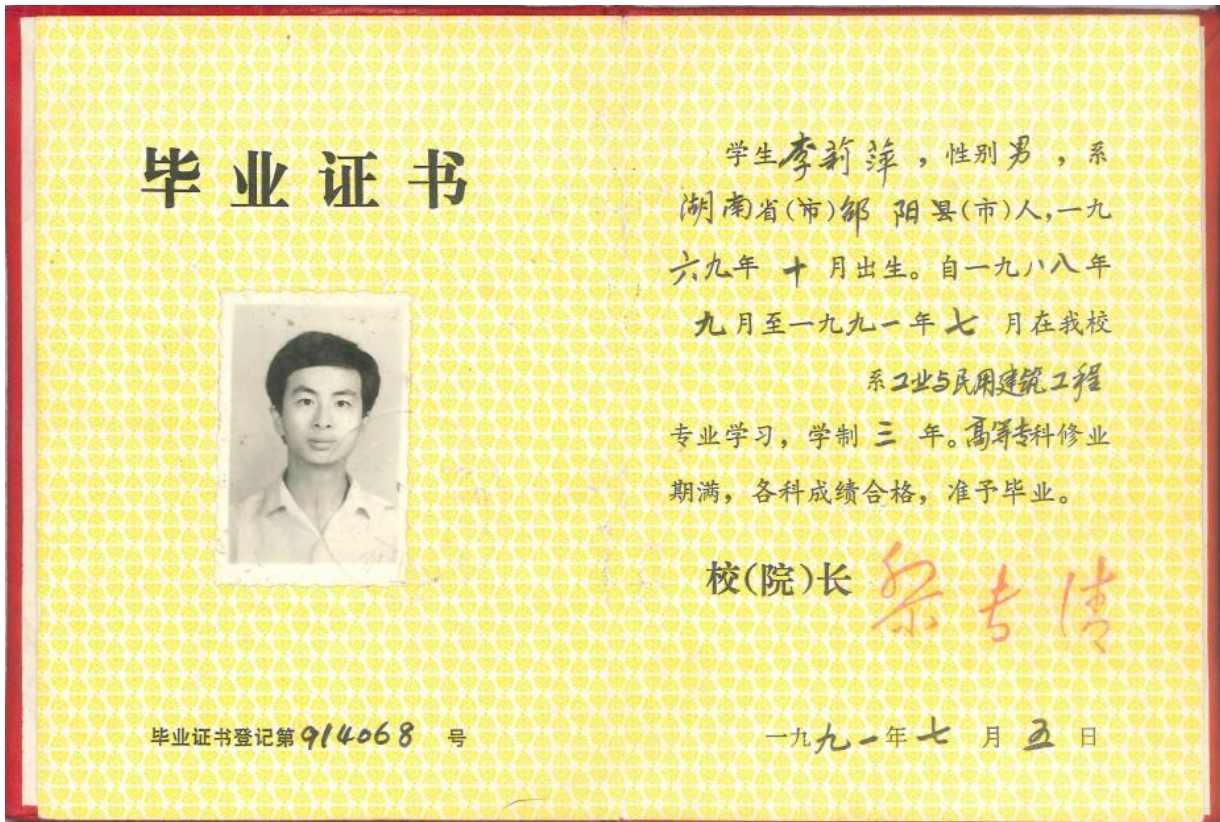 毕业证书
毕业证书登记第914068 号
学生李新萍，性别男，系
湖南省(市)邵阳县(市)人，一九
六九年 十 月出生。自一九八八年
九月至一九九一年七 月在我校
系工业与民用建筑工程
专业学习，学制 三 年。高等专科修业
期满，各科成绩合格，准予毕业。
校(院)长
一九九一年七 月 五 日